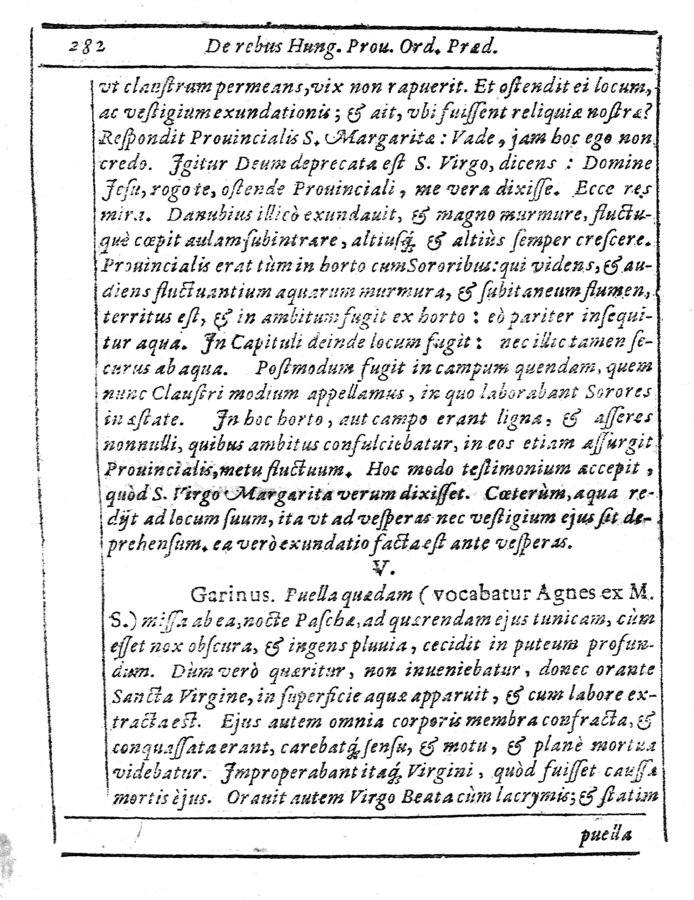 282 De rebus Hung. Prou. Ord. Præd.
vt clauſtrum permeans, vix non rapuerit. Et oſtendit ei locum,
ac veſtigium exundationis; & ait, vbi fuiſſent reliquiæ noſtræ?
Reſpondit Prouincialis S. Margaritæ : Vade, jam hoc ego non
credo. Igitur Deum deprecata eſt S. Virgo, dicens : Domine
Jeſu, rogo te, oſtende Prouinciali, me vera dixiſſe. Ecce res
mira. Danubius illicò exundauit, & magno murmure, fluctu-
què cœpit aulam ſubintrare, altiuſq́; & altiùs ſemper creſcere.
Prouincialis erat tùm in horto cum Sororibus: qui videns, & au-
diens fluctuantium aquarum murmura, & ſubitaneum flumen,
territus eſt, & in ambitum fugit ex horto : eò pariter inſequi-
tur aqua. In Capituli deinde locum fugit : nec illic tamen ſe-
curus ab aqua. Poſtmodum fugit in campum quendam, quem
nunc Clauſtri modium appellamus, in quo laborabant Sorores
in æſtate. In hoc horto, aut campo erant ligna, & aſſeres
nonnulli, quibus ambitus confulciebatur, in eos etiam aſſurgit
Prouincialis, metu fluctuum. Hoc modo teſtimonium accepit,
quòd S. Virgo Margarita verum dixiſſet. Cœterùm, aqua re-
dijt ad locum ſuum, ita vt ad veſperas nec veſtigium ejus ſit de-
prehenſum. ea verò exundatio facta eſt ante veſperas.
V.
Garinus. Puella quædam (vocabatur Agnes ex M.
S.) miſſa ab ea, nocte Paſchæ, ad quærendam ejus tunicam, cùm
eſſet nox obſcura, & ingens pluuia, cecidit in puteum profun-
dum. Dùm verò quæritur, non inueniebatur, donec orante
Sancta Virgine, in ſuperficie aquæ apparuit, & cum labore ex-
tracta eſt. Ejus autem omnia corporis membra confracta, &
conquaſſata erant, carebatq́; ſenſu, & motu, & planè mortua
videbatur. Improperabant itaq́; Virgini, quòd fuiſſet cauſſa
mortis èjus. Orauit autem Virgo Beata cùm lacrymis; & ſtatim
puella